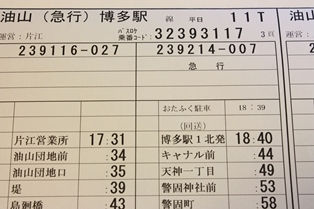 油山（急行）博多駅 線 平日 11T 油山
運営：片江 バスロケ 乗番コード： 32393117 3頁 運営：
239116-027 239214-007
急行
おたふく駐車 18：39
（回送）
片江営業所 17:31 博多駅１北発 18:40
油山団地前 :34 キャナル前 :44
油山団地口 :35 天神一丁目 :49
堤 :39 警固神社前 :53
島廻橋 :43 警固町 :58